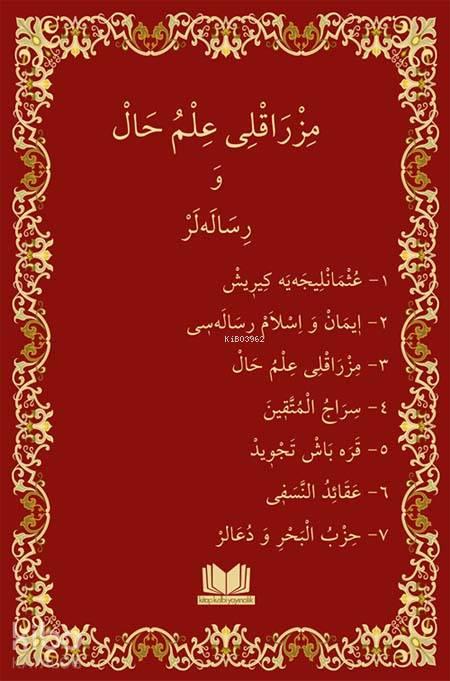 مِزْرَاقْلِى عِلْمُ حَالْ
وَ
رِسَالَه‌لَرْ
١- عُثْمَانْلِيجَه‌يَه كِيرِيشْ
٢- اِيمَانْ وَ اِسْلَامْ رِسَالَه‌سِى
KiB03962
٣- مِزْرَاقْلِى عِلْمُ حَالْ
٤- سِرَاجُ الْمُتَّقِينَ
٥- قَرَه بَاشْ تَجْوِيدْ
٦- عَقَائِدُ النَّسَفِى
٧- حِزْبُ الْبَحْرِ وَ دُعَالَرْ
kitap kalbi yayıncılık